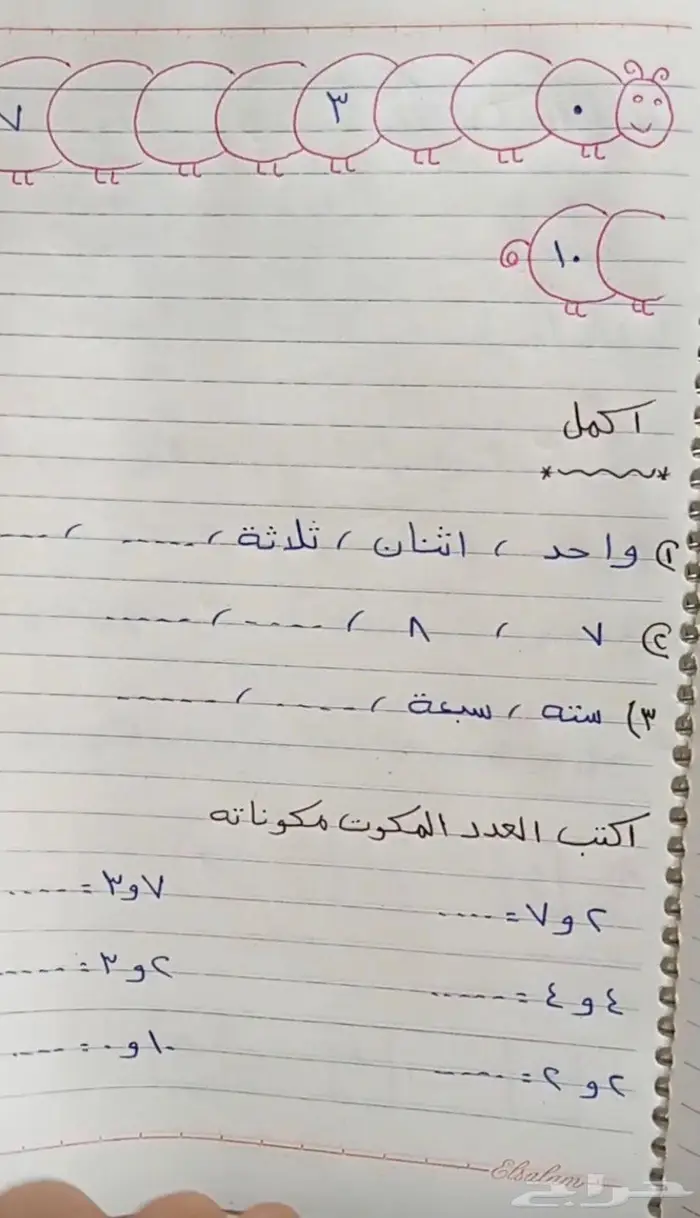 ٠ ٣ ٧
١٠
اكمل
*~~~~*
١) واحد ، اثنان ، ثلاثة ، ----- ، ----
٢) ٧ ، ٨ ، ----- ، -----
٣) سته ، سبعة ، ----- ، -----
اكتب العدد المكوت مكوناته
٢ و ٧ = ---- ٧ و ٣ = ----
٤ و ٤ = ----- ٢ و ٣ = ----
٢ و ٢ = ----- ١٠ و ٠ = ----
Elsalam
حراج